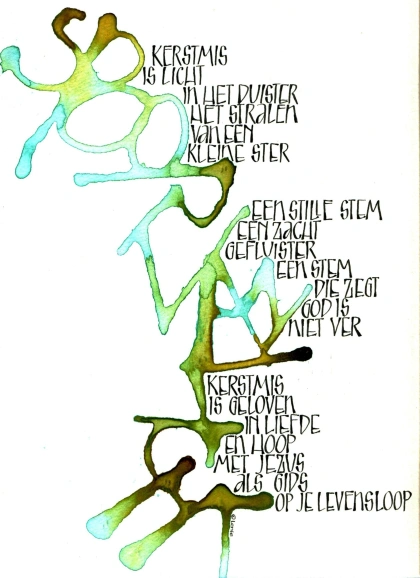 KERSTMIS
IS LICHT
IN HET DUISTER
HET STRALEN
VAN EEN
KLEINE STER
EEN STILLE STEM
EEN ZACHT
GEFLUISTER
EEN STEM
DIE ZEGT
GOD IS
NIET VER
KERSTMIS
IS GELOVEN
IN LIEFDE
EN HOOP
MET JEZUS
ALS GIDS
OP JE LEVENSLOOP